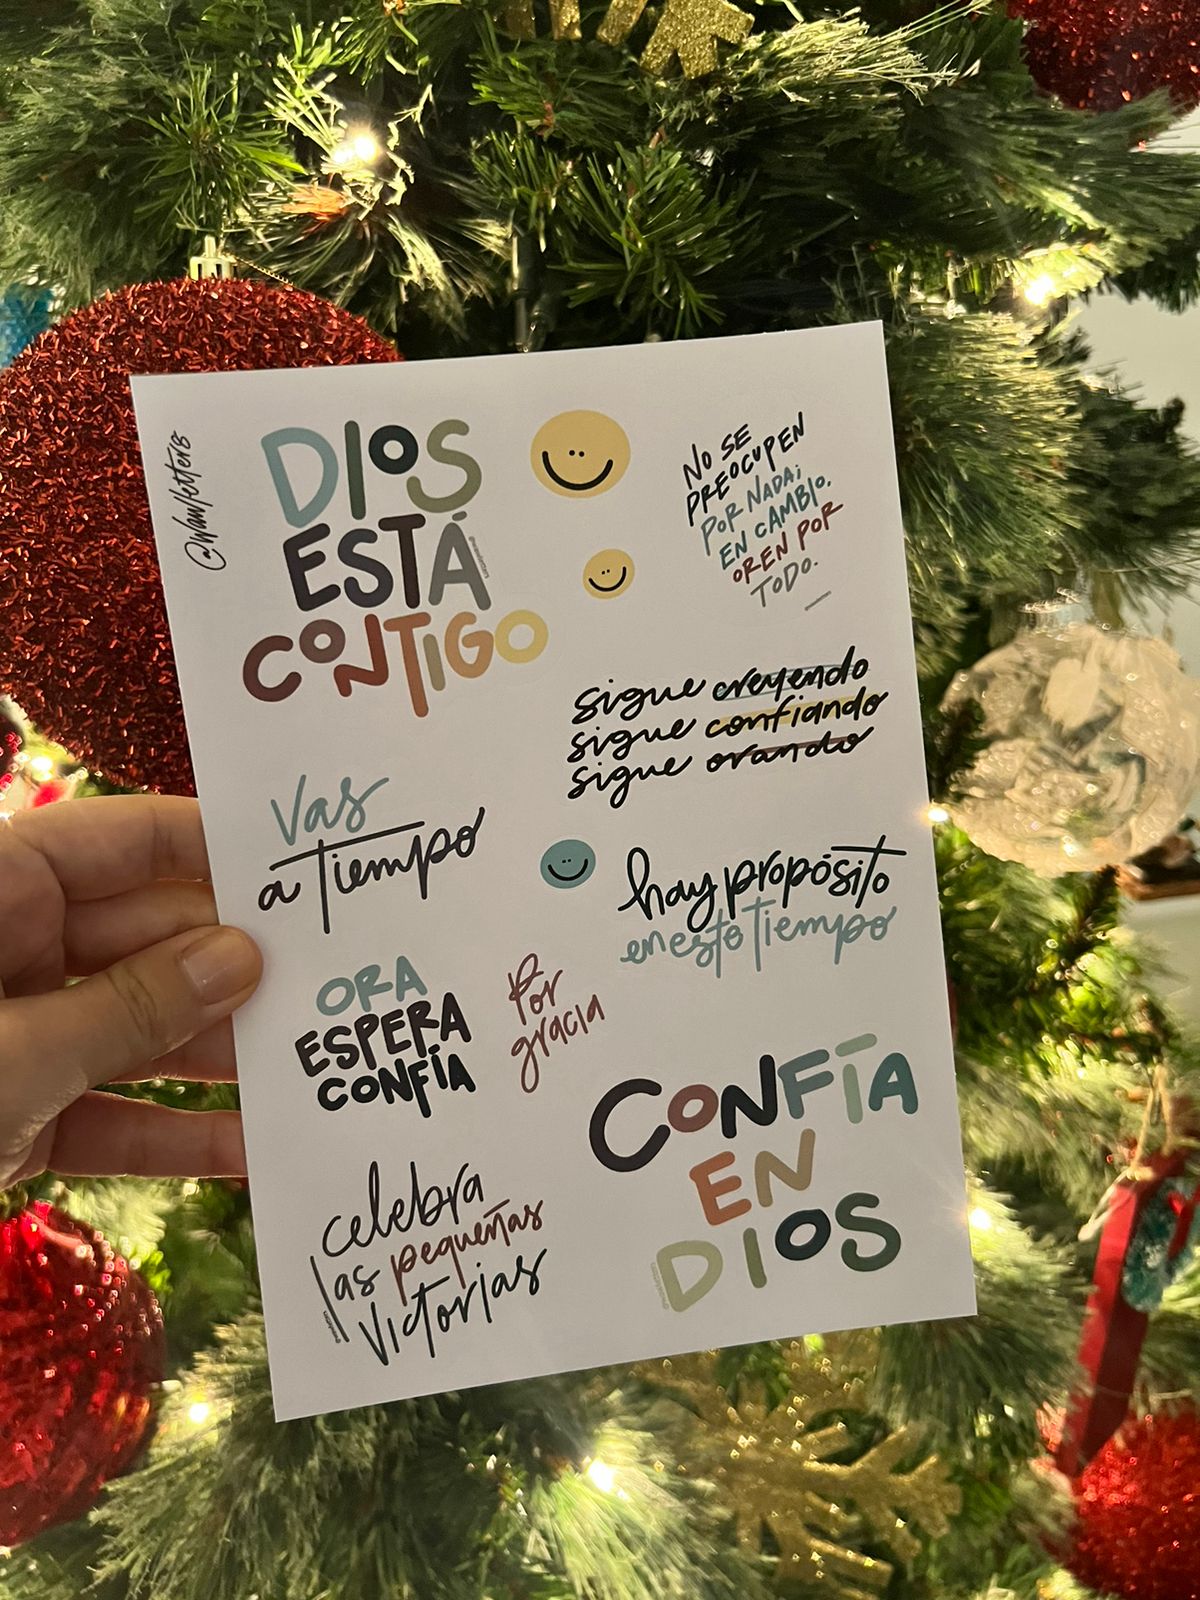 @wawletters
DIOS
ESTÁ
CONTIGO
NO SE
PREOCUPEN
POR NADA;
EN CAMBIO,
OREN POR
TODO.
sigue creyendo
sigue confiando
sigue orando
Vas
a tiempo
hay propósito
en esto tiempo
ORA
ESPERA
CONFÍA
Por
gracia
CONFÍA
EN
DIOS
celebra
las pequeñas
victorias